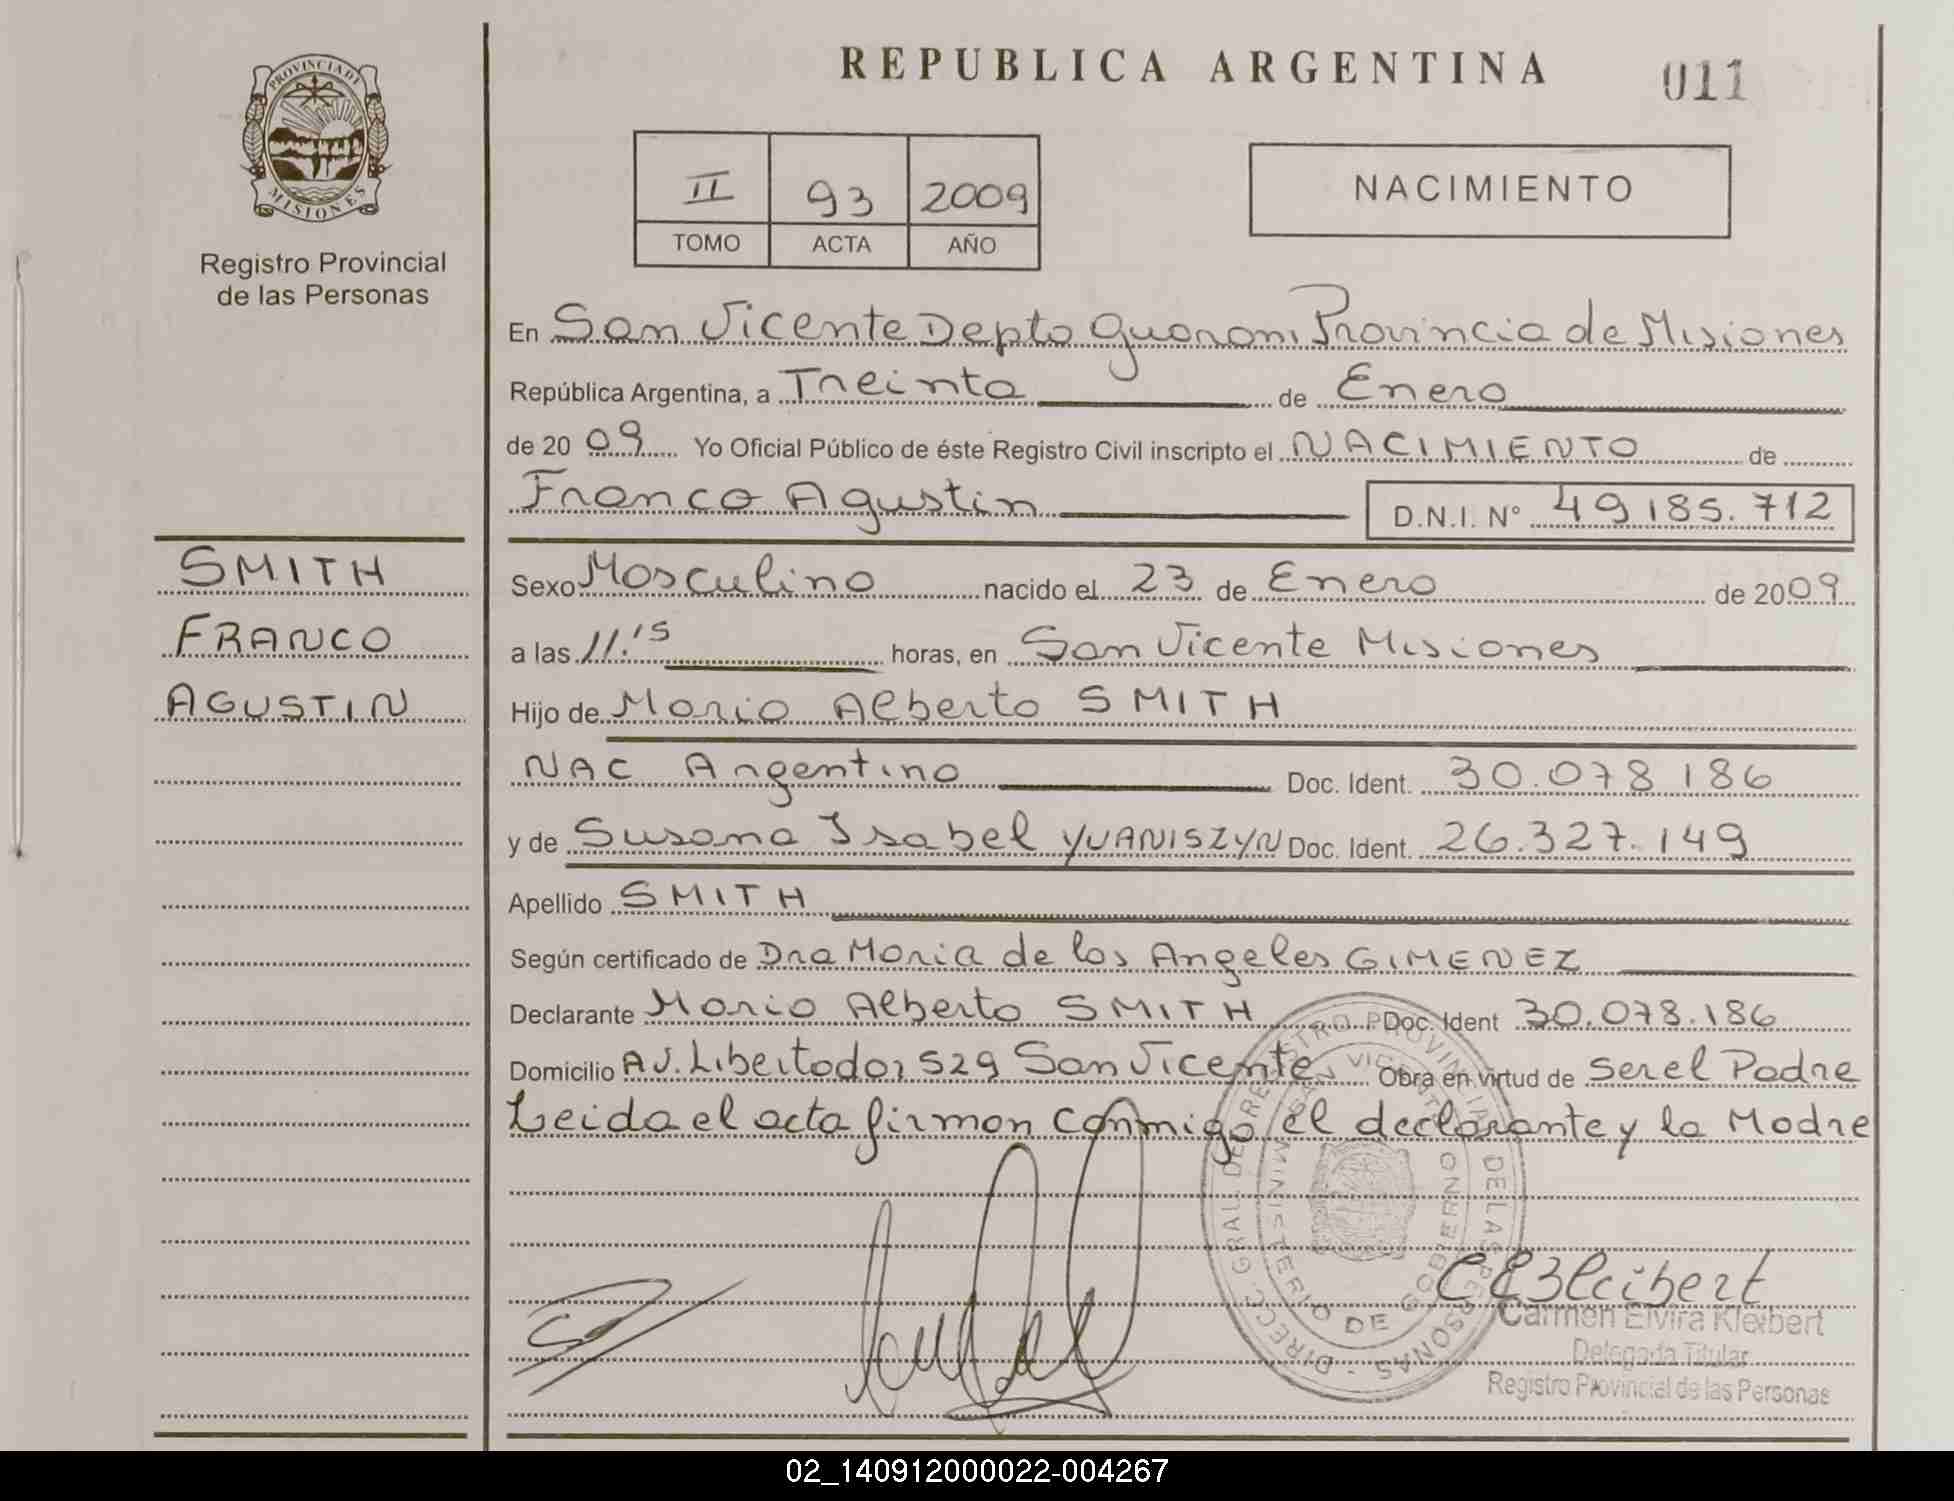 REPUBLICA ARGENTINA
011
PROVINCIA DE
MISIONES
Registro Provincial
de las Personas
II 93 2009
TOMO ACTA AÑO
NACIMIENTO
En San Vicente Depto Guarani Provincia de Misiones
República Argentina, a Treinta de Enero
de 20 09 Yo Oficial Público de éste Registro Civil inscripto el NACIMIENTO de
Franco Agustin D.N.I. N° 49185.712
SMITH
FRANCO
AGUSTIN
Sexo Masculino nacido el 23 de Enero de 2009
a las 11.15 horas, en San Vicente Misiones
Hijo de Mario Alberto SMITH
NAC Argentino Doc. Ident. 30.078186
y de Susana Isabel YUANISZYN Doc. Ident. 26.327.149
Apellido SMITH
Según certificado de Dra Maria de los Angeles GIMENEZ
Declarante Mario Alberto SMITH Doc. Ident 30.078.186
Domicilio AV. Libertador 529 San Vicente Obra en virtud de ser el Padre
Leida el acta firman conmigo el declarante y la Madre
DIRECC. GRAL. DEL REGISTRO PROVINCIAL DE LAS PERSONAS -
MINISTERIO DE GOBIERNO
SAN VICENTE
Carmen Elvira Kleibert
Delegada Titular
Registro Provincial de las Personas
02_140912000022-004267